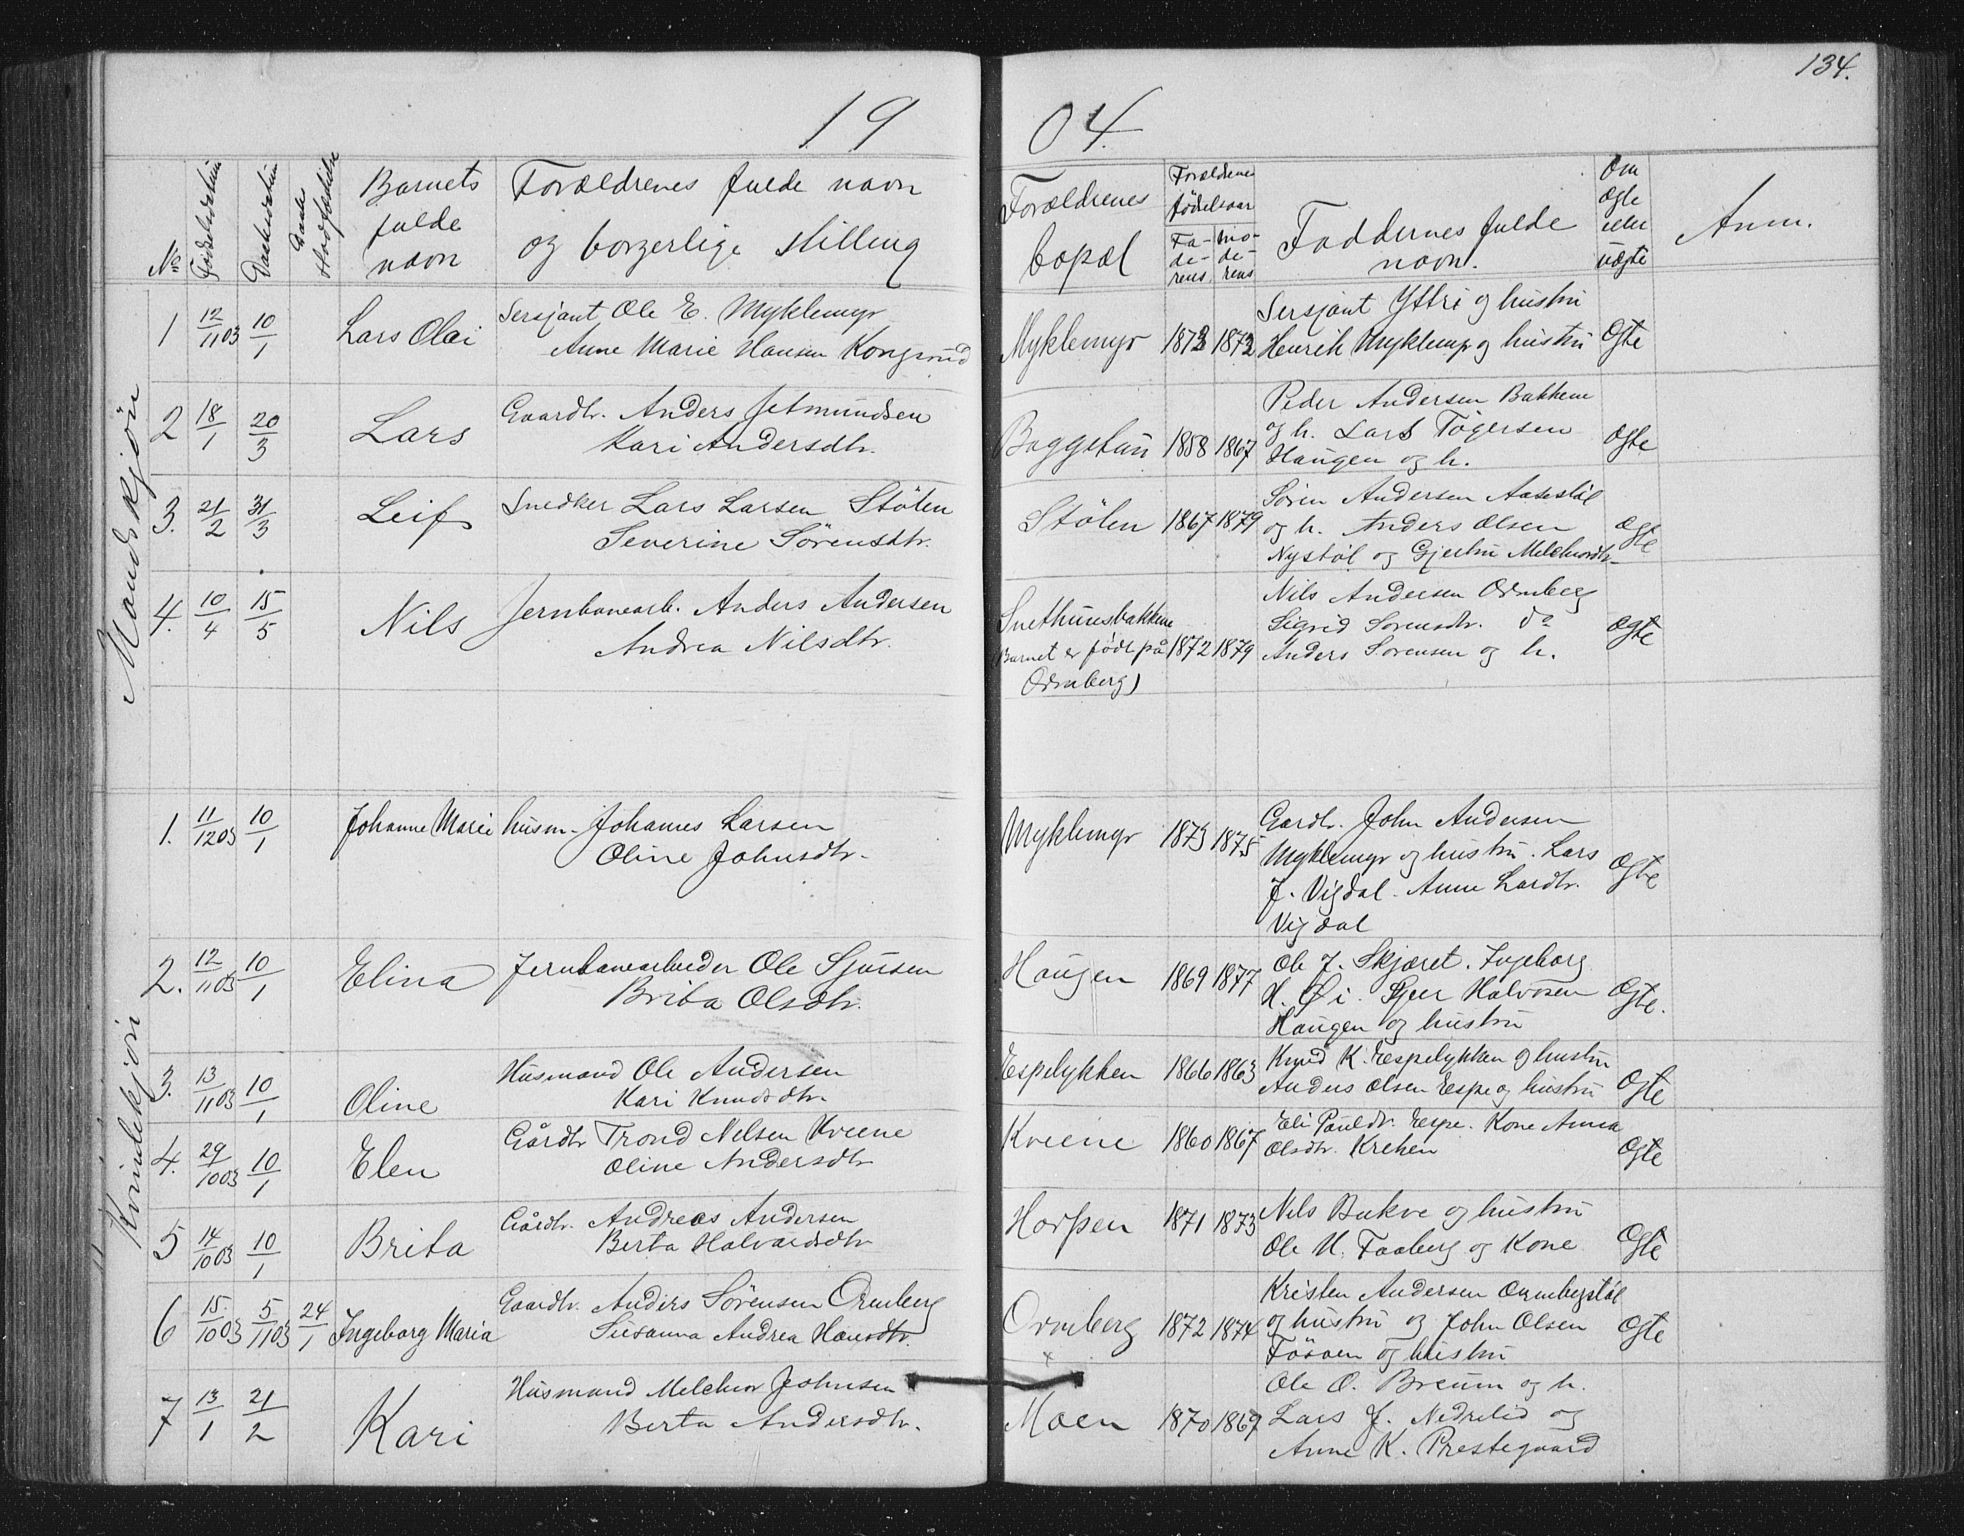 134.
19 04.
No Fødselsdatum Daabsdatum Barnets fulde navn Forældrenes fulde navn og borgerlige stilling Forældrenes bopæl Forældrenes fødselsaar Faderens Moderens Faddernes fulde navn. Om ægte eller uægte Anm.
Mandskjøn
1 12/11 03 10/1 Lars Olai Sersjant Ole E. Myklemyr Myklemyr 1873 1872 Sersjant Yttri og hustru Ægte
Anne Marie Hansen Kongsrud Henrik Myklemyr og hustru
2 18/1 20/3 Lars Gaardbr. Anders Jetmundsen Baggetun 1858 1867 Peder Andersen Bakkene Ægte
Kari Andersdtr. og h. Lars Tøgersen
Haugen og h.
3. 21/2 31/3 Leif Snedker Lars Larsen Stölen Stölen 1867 1879 Sören Andersen Aasestöl Ægte
Severine Sörensdtr. og h. Anders Olsen
Nystöl og Gjertru Melchiordtr.
4. 10/4 15/5 Nils Jernbanearb. Anders Andersen Snethunsbakkene 1872 1879 Nils Andersen Ormberg Ægte
Andrea Nilsdtr. (Barnet er födt på Sigrid Sorensdtr. do
Ormberg) Anders Sorensen og h.
Kvindekjön
1. 11/12 03 10/1 Johanne Marie husm. Johannes Larsen Myklemyr 1873 1875 Gardbr. John Andersen Ægte
Oline Johnsdtr. Myklemyr og hustru. Lars
J. Vigdal. Anne Larsdtr.
Vigdal
2. 12/11 03 10/1 Elina Jernbanearbeider Ole Sjursen Haugen 1869 1877 Ole J. Skjæret. Ingeborg Ægte.
Brita Olsdtr. H. Øi. Peer Halvorsen
Haugen og hustru
3. 13/11 03 10/1 Oline Husmand Ole Andersen Espelykken 1866 1863 Knud K. Espelykken og hustru Ægte
Kari Knudsdtr. Anders Olsen Espe og hustru
4. 29/10 03 10/1 Elen Gårdbr Trond Nelsen Kveene Kveene 1860 1867 Eli Pauldr. Espe. Kone Anna Ægte
Oline Andersdtr Olsdtr. Kreken
5 14/10 03 10/1 Brita Gårdbr. Andreas Andersen Horpen 1871 1873 Nils Bukve og hustru Ægte
Berta Halvardsdtr Ole H. Faaberg og Kone
6 15/10 03 5/11 03 24/1 Ingeborg Maria Gaardbr. Anders Sörensen Ormberg Ormberg 1872 1874 Kristen Andersen Ormbergstöl Ægte
Susanna Andrea Hansdtr. og hustru og John Olsen
Fösöen og hustru
7 13/1 21/2 Kari Husmand Melchior Johnsen Moen 1870 1867 Ole O. Breum og h.
Berta Andersdtr. Lars J. Nedrelid og
Anne K. Prestegaard